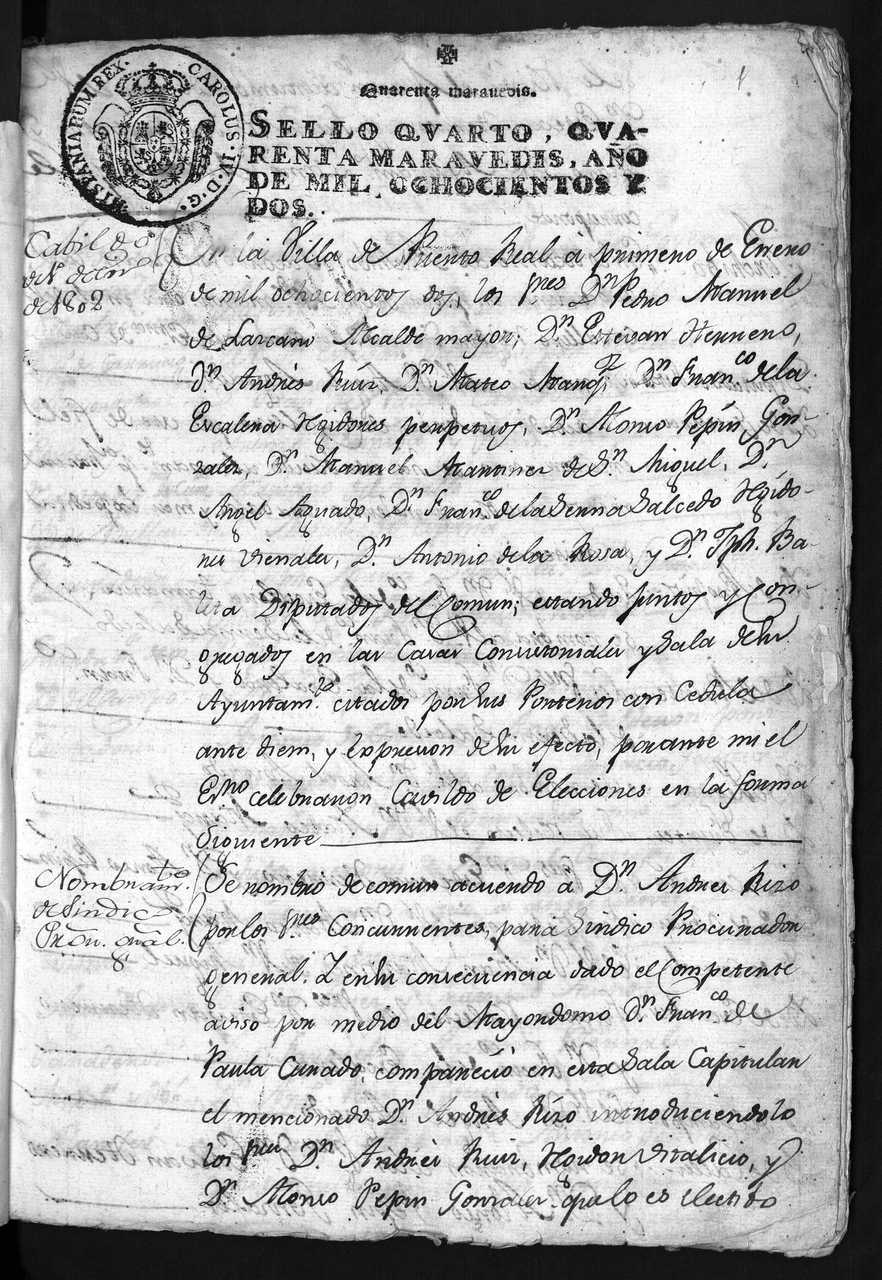 1
Quarenta maravedis.
HISPANIARUM REX. CAROLUS IV D.G.
SELLO QVARTO, QVA-
RENTA MARAVEDIS, AÑO
DE MIL OCHOCIENTOS Y
DOS.
Cabildo
de 1802
En la Villa de Puerto Real à primero de Enero
de mil ochocientos dos, los Sres Dn Pedro Manuel
de Lazcano Alcalde mayor; Dn Estevan Herrero,
Dn Andrès Ruiz, Dn Mateo Marqz, Dn Franco de la
Escalera Rgidores perpetuos, Dn Alonso Pepin Gon-
zalez, Dn Manuel Martinez de Sn Miguel, Dn
Angel Aguado, Dn Franco de la Serna Salcedo Rgido-
res vienales, Dn Antonio de la Rosa, y Dn Jph. Ba-
Diputados del Comun; estando juntos y Con-
gregados en las Casas Consistoriales y Sala de su
Ayuntamto citados por sus Porteros con Cedula
ante diem, y expresion de su efecto, por ante mi el
Esno celebraron Cavildo de Elecciones en la forma
Siguiente
Nombramto
de Sindico
Procu. gral.
Se nombrò de comun acuerdo à Dn Andres Rizo
por los Sres Concurrentes, para Sindico Procurador
general. Y en su consecuencia dado el Competente
aviso por medio del Mayordomo Dn Franco de
Paula Curado, compareciò en esta Sala Capitular
el mencionado Dn Andrès Rizo introduciendolo
los Sres Dn Andrès Ruiz, Rgidor Vitalicio, y
Dn Alonso Pepin Gonzalez qe lo es electivo